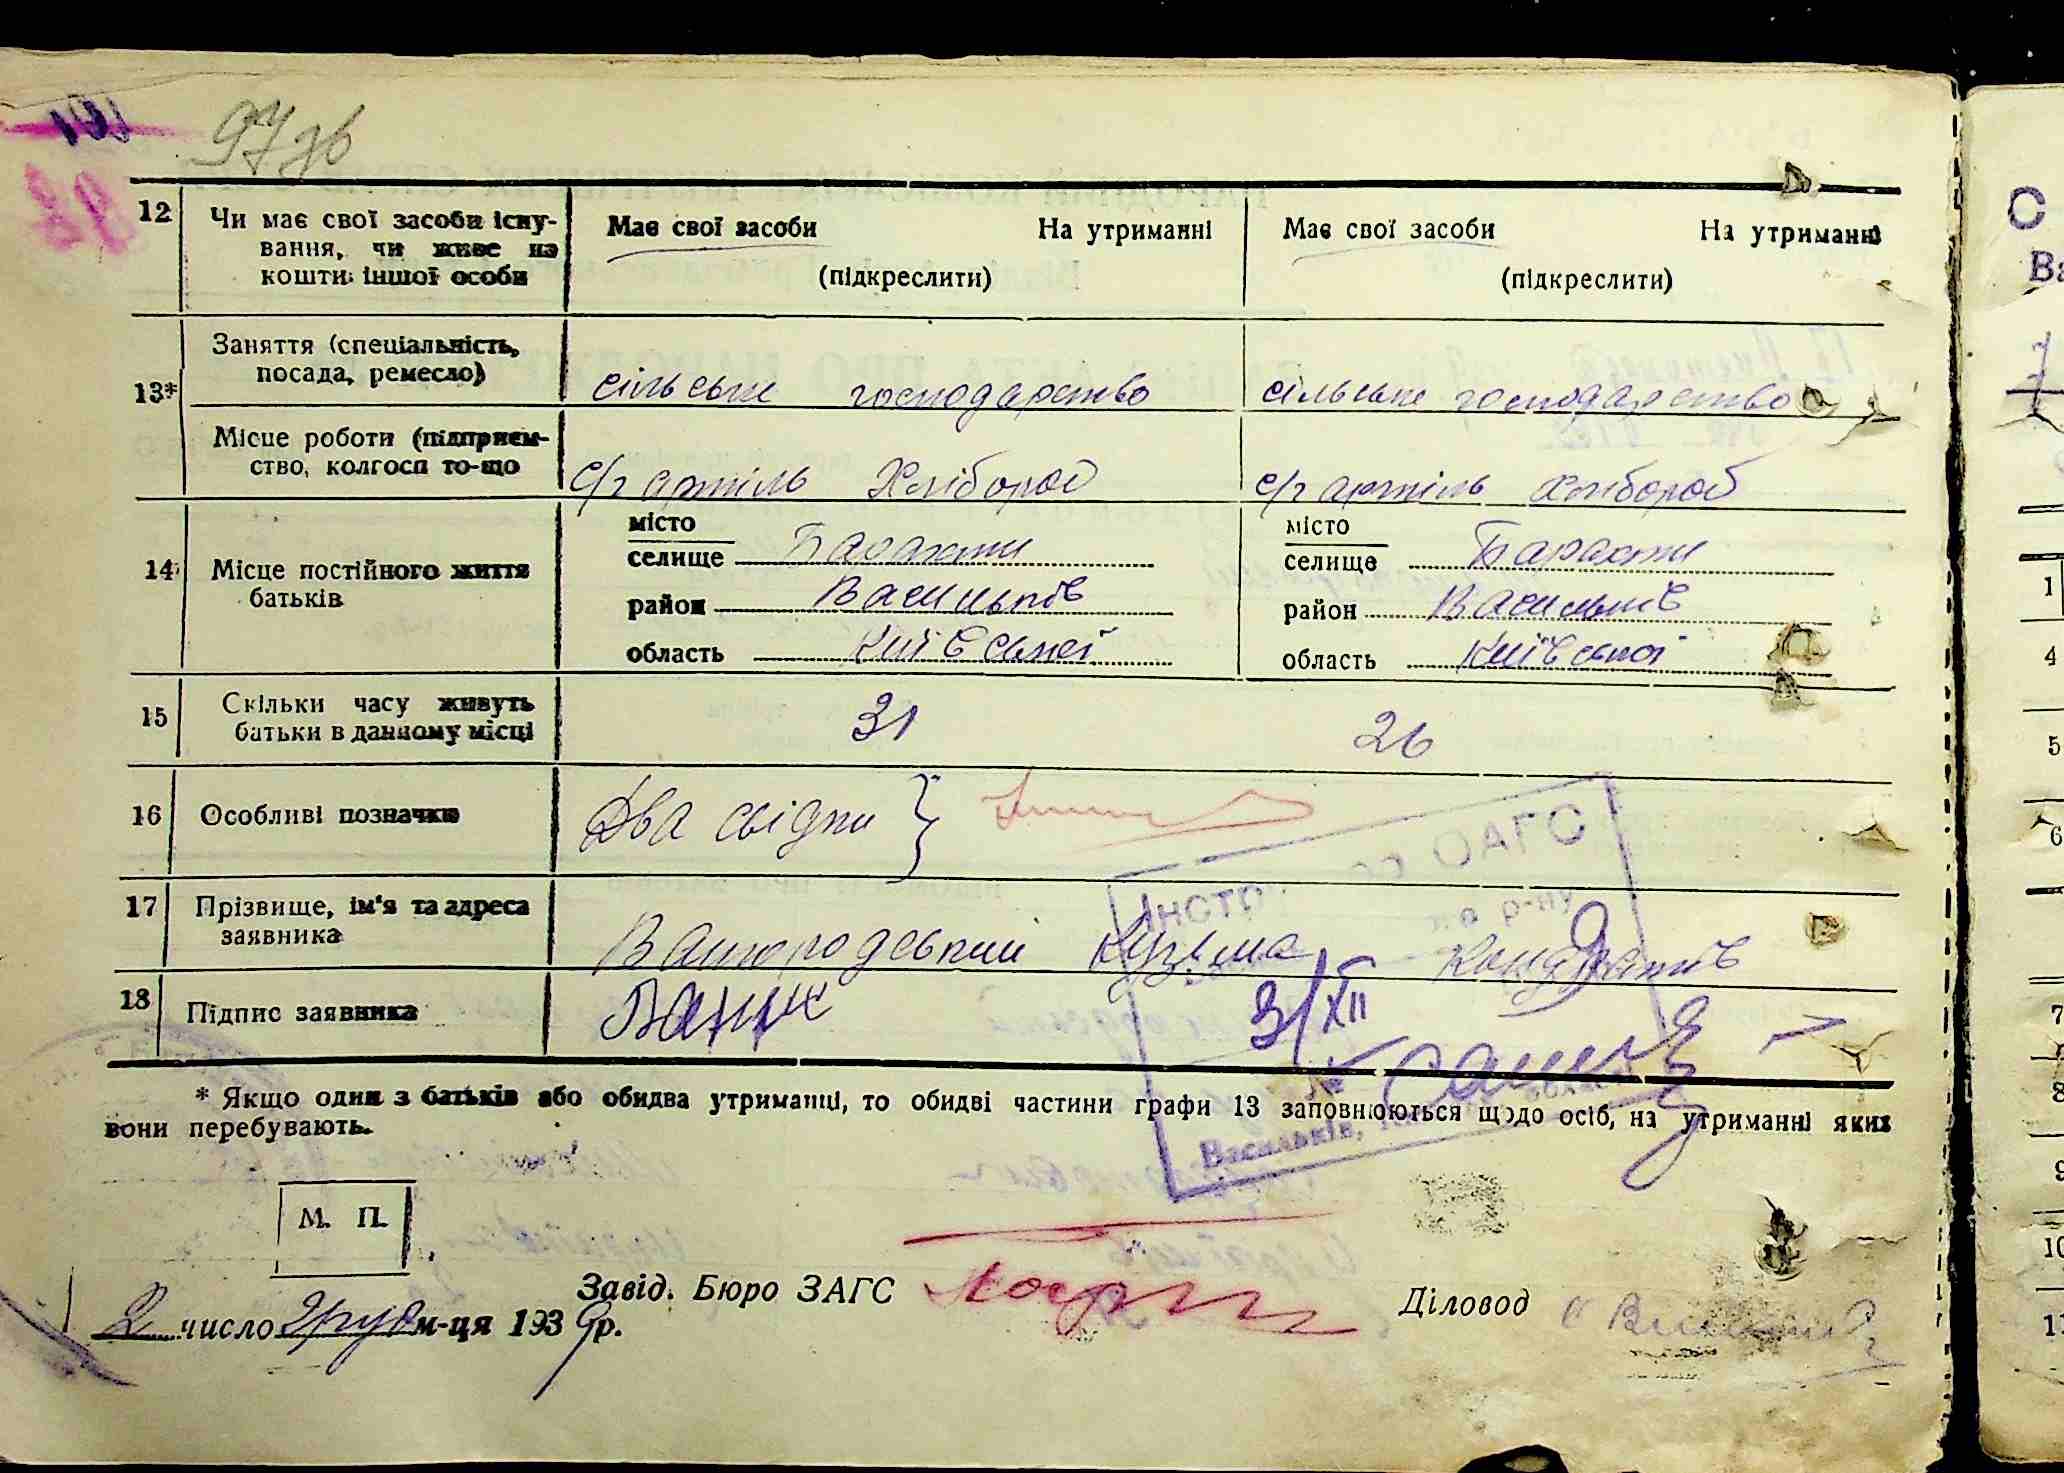 97 зв
12 Чи має свої засоби існу-
вання, чи живе на
кошти іншої особи
Має свої засоби На утриманні
(підкреслити)
Має свої засоби На утриманні
(підкреслити)
13* Заняття (спеціальність,
посада, ремесло)
сільське господарство
сільське господарство
Місце роботи (підприєм-
ство, колгосп то-що
с/г артіль Хлібороб
с/г артіль Хлібороб
14 Місце постійного життя
батьків
місто
селище Барахти
район Васильків
область Київської
місто
селище Барахти
район Васильків
область Київської
15 Скільки часу живуть
батьки в данному місці
31
26
16 Особливі позначки
Два свідки
17 Прізвище, ім'я та адреса
заявника
Кузьма Кондратів
18 Підпис заявника
31/XII
Інстр ОАГС
р-ну
Васильків,
* Якщо один з батьків або обидва утриманці, то обидві частини графи 13 заповнюються щодо осіб, на утриманні яких
вони перебувають.
М. П.
Завід. Бюро ЗАГС
Діловод
2 число груд м-ця 1939 р.
С
Ва
1
4
5
6
7
8
9
10
11